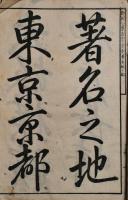 著名之地
東京京都